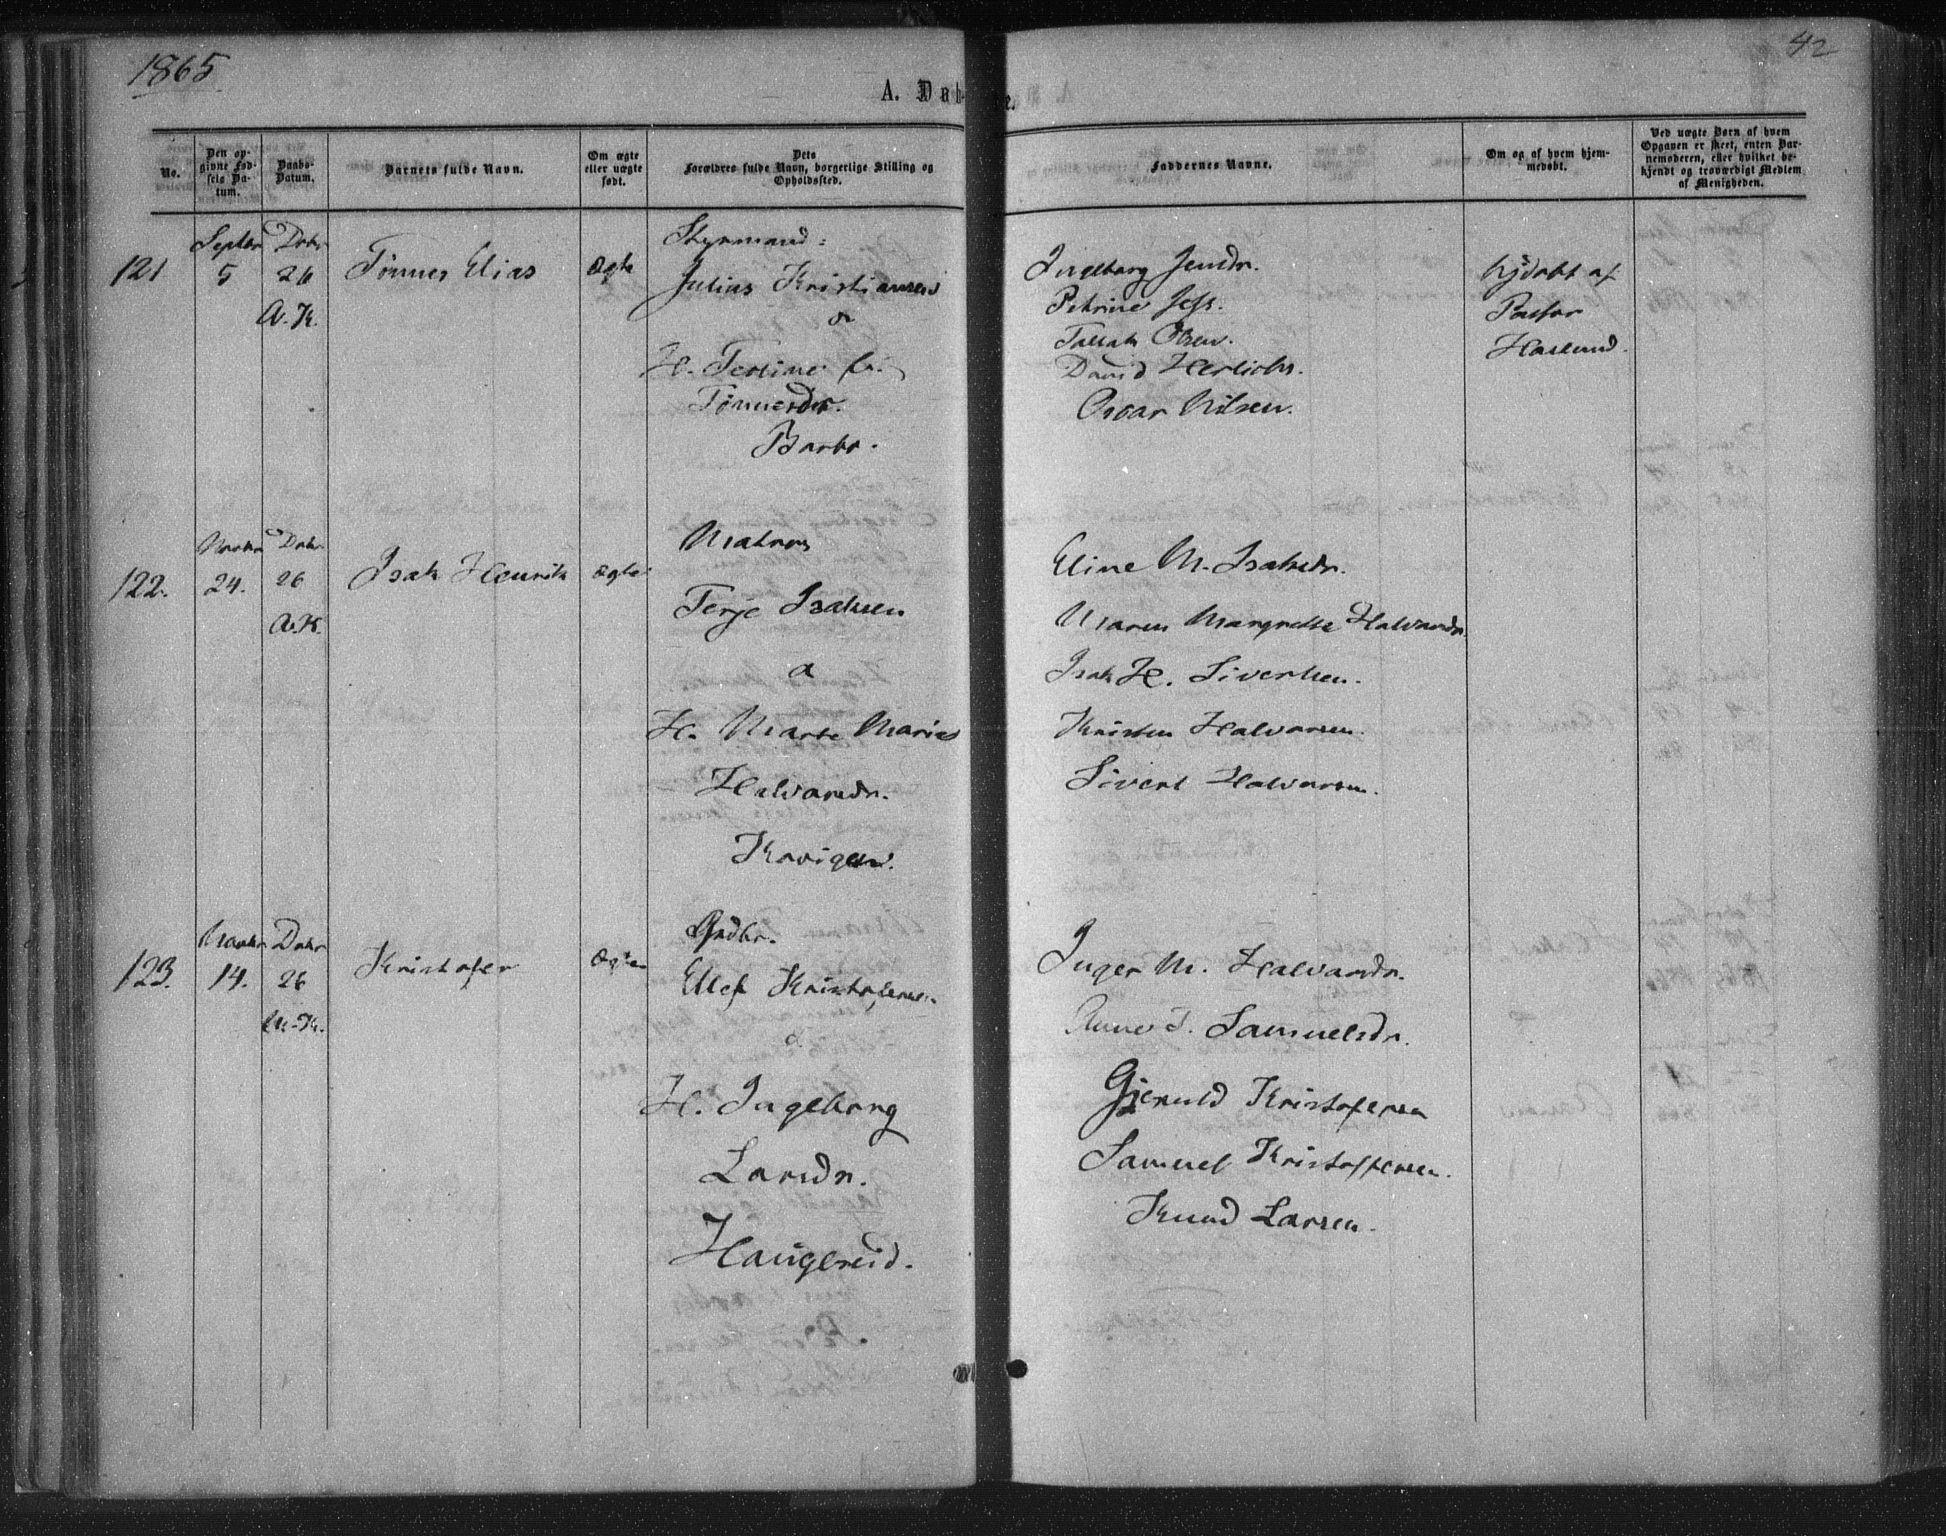 1865
42
A. Døbte.
No.
Den opgivne Fødsels Datum.
Daabs-Datum.
Barnets fulde Navn.
Om ægte eller uægte født.
Dets Forældres fulde Navn, borgerlige Stilling og Opholdssted.
Faddernes Navne.
Om og af hvem hjemmedøbt.
Ved uægte Børn af hvem Opgaven er skeet, enten Barnemoderen, eller hvilket bekjendt og troværdigt Medlem af Menigheden.
121
Septbr
5
Dcbr
26
A. K.
Tønnes Elias
Ægte
Styrmand:
Julius Kristiansen
og
H. Tonnesdr.
Barbo.
Ingeborg Jensdr.
Petrine
Tallak Olsen.
David
Oscar Nilsen.
hjdøbt af
Pastor
Haslund.
122.
Novbr
24.
Dcbr
26
A. K.
Isak Henrik
ægte
Matros
Terje Isaksen
o
H. Marte Maria
Halvorsdr.
Kavigen.
Eline M. Isaksdr.
Maren Margrethe Halvorsdr
Isak H. Sivertsen.
Kristen Halvorsen.
Sivert Halvorsen.
123.
Novbr
14.
Dcbr
26
A. K.
Kristofer
Ægte
Grdbr.
Ellef Kristofersen
o
H. Ingeborg
Larsdr.
Haugereid.
Inger M. Halvorsdr.
Anne T. Samuelsdr.
Gjeruld Kristofersen
Samuel Kristoffersen.
Knud Larsen.